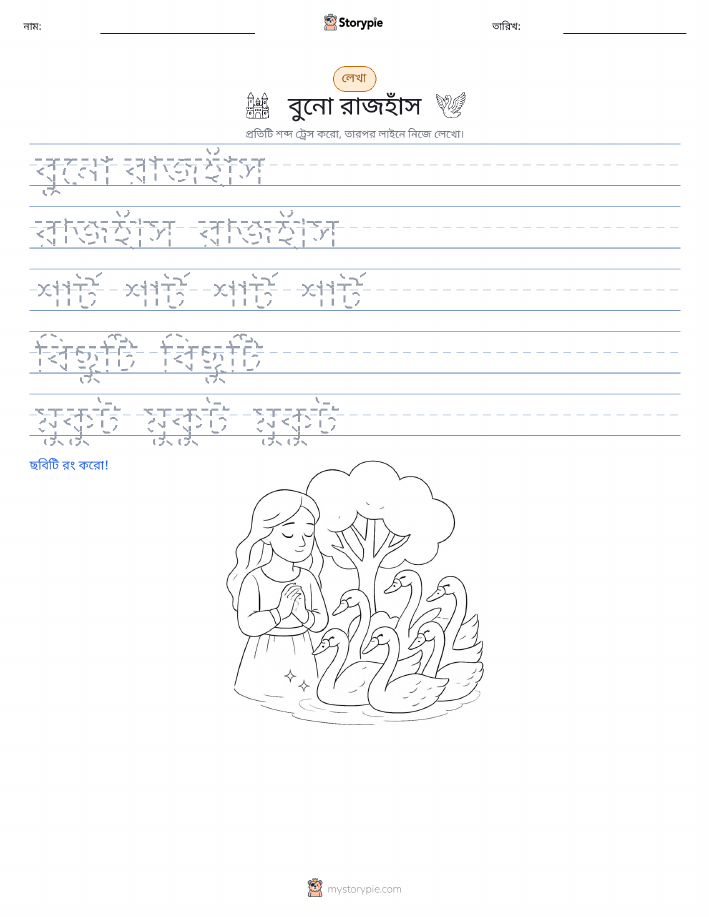 নাম:
Storypie
তারিখ:
লেখা
বুনো রাজহাঁস
প্রতিটি শব্দ ট্রেস করো, তারপর লাইনে নিজে লেখো।
বুনো রাজহাঁস
রাজহাঁস রাজহাঁস
শার্ট শার্ট শার্ট শার্ট
বিছুটি বিছুটি
মুকুট মুকুট মুকুট
ছবিটি রং করো!
mystorypie.com